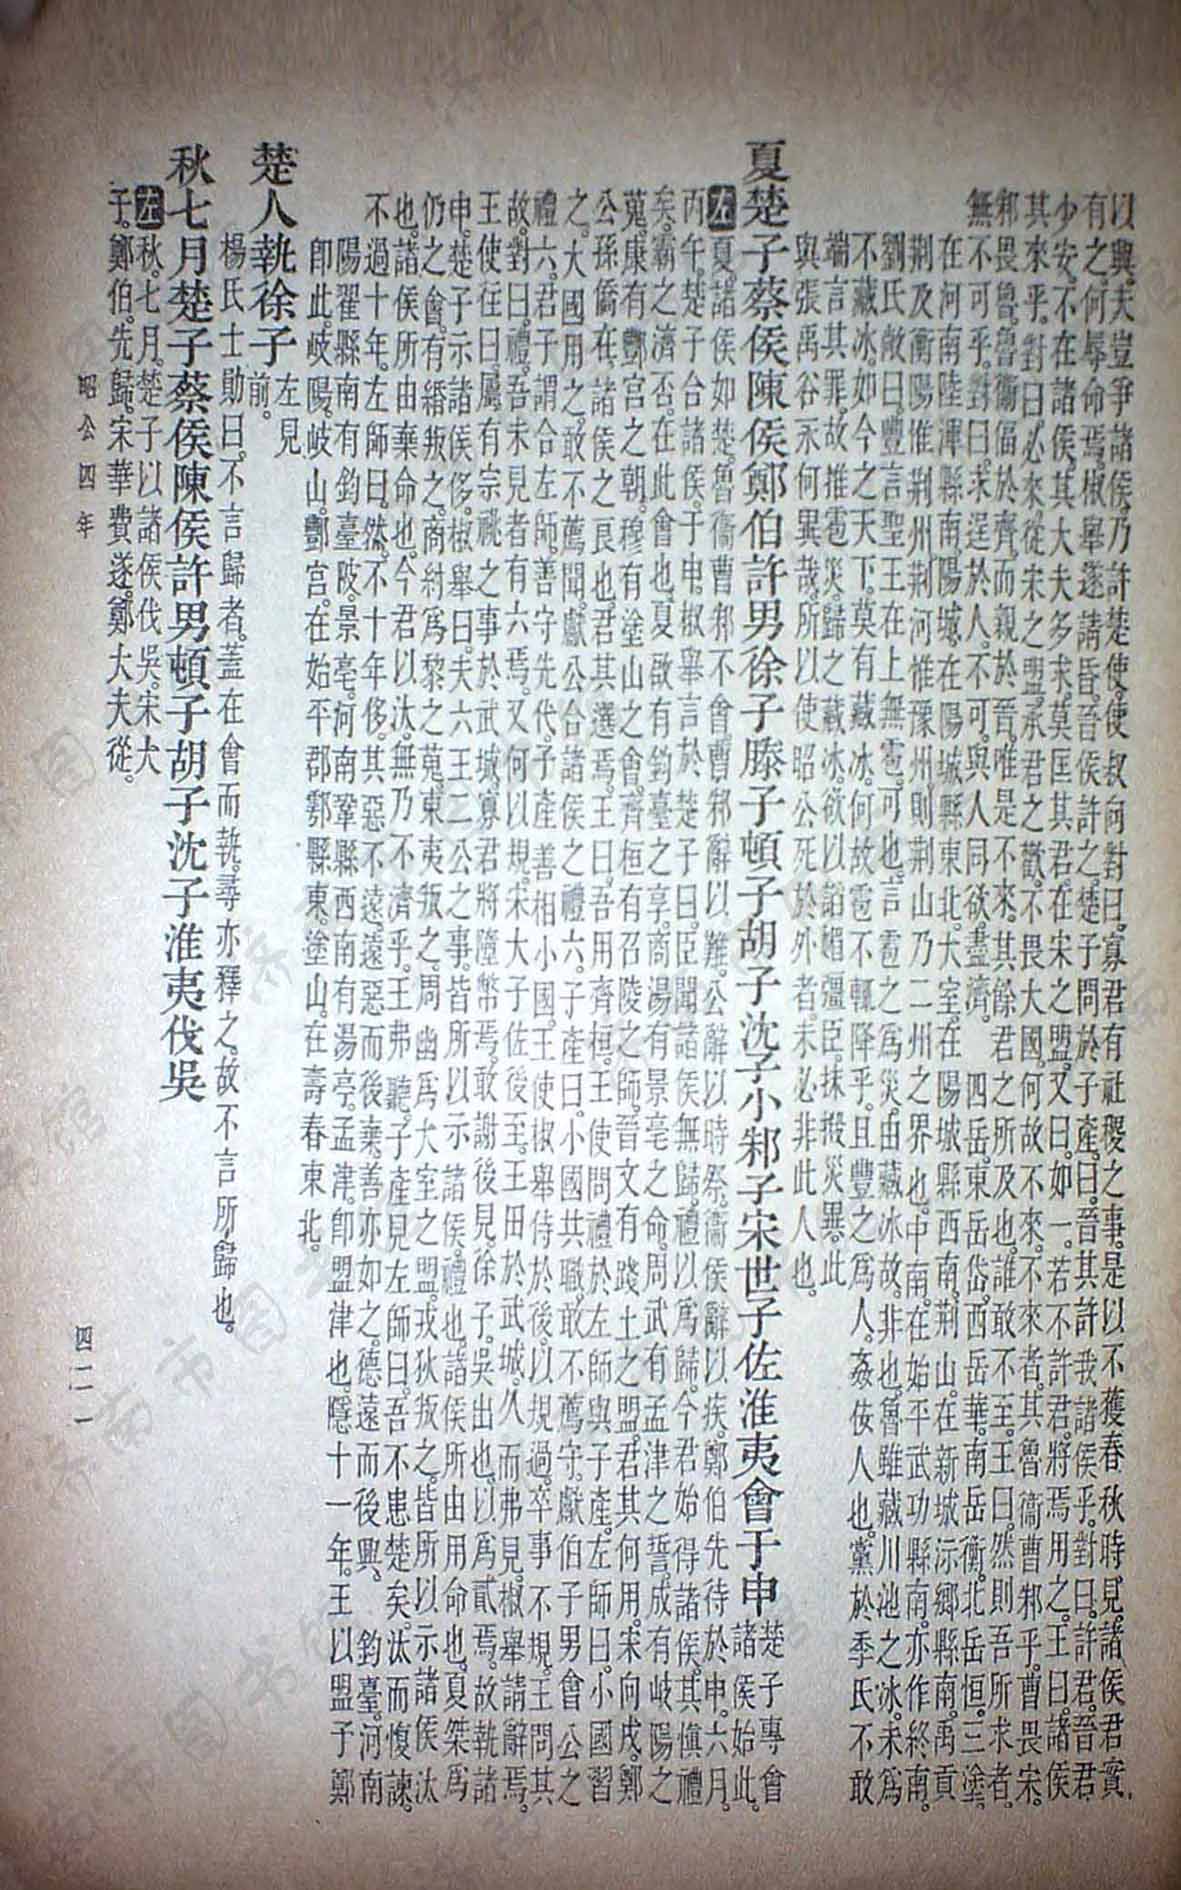 以興。夫豈爭諸侯。乃許楚使。使叔向對曰。寡君有社稷之事。是以不獲春秋時見。諸侯君實
有之。何辱命焉。椒舉遂請昏。晉侯許之。楚子問於子產曰。晉其許我諸侯乎。對曰。許君。晉君
少安。不在諸侯。其大夫多求。莫匡其君。在宋之盟。又曰。如一。若不許君。將焉用之。王曰。諸侯
其來乎。對曰。必來。從宋之盟。承君之歡。不畏大國。何故不來。不來者。其魯衞曹邾乎。曹畏宋。
邾畏魯。魯衞偪於齊。而親於晉。唯是不來。其餘君之所及也。誰敢不至。王曰。然則吾所求者。
無不可乎。對曰。求逞於人。不可。與人同欲。盡濟。 四岳。東岳岱。西岳華。南岳衡。北岳恒。三塗。
在河南陸渾縣南。陽城。在陽城縣東北。大室。在陽城縣西南。荆山。在新城沶鄉縣南。禹貢
荆及衡陽惟荆州。荆河惟豫州。則荆山乃二州之界也。中南。在始平武功縣南。亦作終南。
劉氏敞曰。豐言聖王在上無雹。可也。言雹之爲災。由藏冰故。非也。魯雖藏川池之冰。未爲
不藏冰。如今之天下。莫有藏冰。何故雹不輒降乎。且豐之爲人。姦佞人也。黨於季氏。不敢
端言其罪。故推雹災歸之藏冰。欲以諂媚彊臣。抹摋災異。此
與張禹谷永何異哉。所以使昭公死於外者。未必非此人也。
夏楚子蔡侯陳侯鄭伯許男徐子滕子頓子胡子沈子小邾子宋世子佐淮夷會于申 楚子專會諸侯始此。
左 夏。諸侯如楚。魯衞曹邾不會。曹邾辭以難。公辭以時祭。衞侯辭以疾。鄭伯先待於申。六月。
丙午。楚子合諸侯于申。椒舉言於楚子曰。臣聞諸侯無歸。禮以爲歸。今君始得諸侯。其愼禮
矣。霸之濟否。在此會也。夏啟有鈞臺之享。商湯有景亳之命。周武有孟津之誓。成有岐陽之
蒐。康有酆宮之朝。穆有塗山之會。齊桓有召陵之師。晉文有踐土之盟。君其何用。宋向戌鄭
公孫僑在。諸侯之良也。君其選焉。王曰。吾用齊桓。王使問禮於左師與子產。左師曰。小國習
之。大國用之。敢不薦聞。獻公合諸侯之禮六。子產曰。小國共職。敢不薦守。獻伯子男會公之
禮六。君子謂合左師。善守先代。子產善相小國。王使椒舉侍於後。以規過。卒事不規。王問其
故。對曰。禮。吾未見者有六焉。又何以規。宋大子佐後至。王田於武城。久而弗見。椒舉請辭焉。
王使往曰。屬有宗祧之事於武城。寡君將墮幣焉。敢謝後見。徐子。吳出也。以爲貳焉。故執諸
申。楚子示諸侯侈。椒舉曰。夫六王二公之事。皆所以示諸侯禮也。諸侯所由用命也。夏桀爲
仍之會。有緡叛之。商紂爲黎之蒐。東夷叛之。周幽爲大室之盟。戎狄叛之。皆所以示諸侯汰
也。諸侯所由棄命也。今君以汰。無乃不濟乎。王弗聽。子產見左師曰。吾不患楚矣。汰而愎諫。
不過十年。左師曰。然。不十年侈。其惡不遠。遠惡而後棄。善亦如之。德遠而後興。 鈞臺。河南
陽翟縣南有鈞臺陂。景亳。河南鞏縣西南有湯亭。孟津。卽盟津也。隱十一年。王以盟予鄭
卽此。岐陽。岐山。酆宮。在始平郡鄠縣東。塗山。在壽春東北。
楚人執徐子 左見前。
楊氏士勛曰。不言歸者。蓋在會而執。尋亦釋之。故不言所歸也。
秋七月楚子蔡侯陳侯許男頓子胡子沈子淮夷伐吳
左 秋。七月。楚子以諸侯伐吳。宋大
子。鄭伯。先歸。宋華費遂。鄭大夫從。
昭公四年
四一一